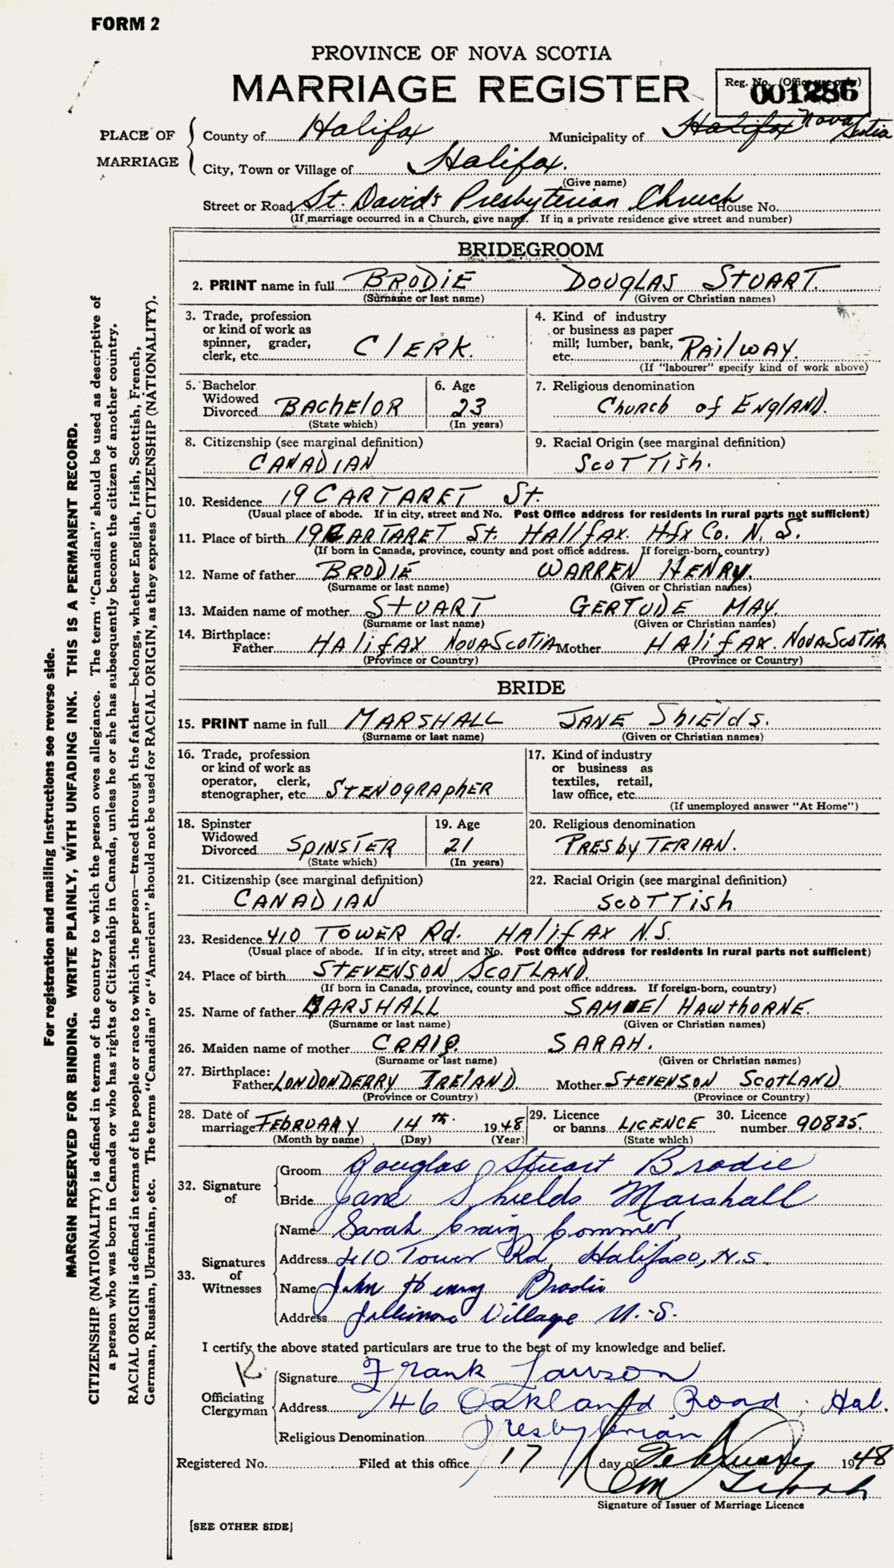 FORM 2
PROVINCE OF NOVA SCOTIA
MARRIAGE REGISTER
Reg. No. (Office use only)
001286
PLACE OF MARRIAGE
County of Halifax Municipality of Halifax Nova Scotia
City, Town or Village of Halifax.
(Give name)
Street or Road St. David's Presbyterian Chruch House No.
(If marriage occurred in a Church, give name. If in a private residence give street and number)
BRIDEGROOM
2. PRINT name in full BRODIE DOUGLAS STUART.
(Surname or last name) (Given or Christian names)
3. Trade, profession or kind of work as spinner, grader, clerk, etc. CLERK.
4. Kind of industry or business as paper mill; lumber, bank, etc. RAILWAY.
(If "labourer" specify kind of work above)
5. Bachelor Widowed Divorced BACHELOR
(State which)
6. Age 23
(In years)
7. Religious denomination
Church of ENGLAND.
8. Citizenship (see marginal definition)
CANADIAN
9. Racial Origin (see marginal definition)
SCOTTISH.
10. Residence 19 CARTARET St.
(Usual place of abode. If in city, street and No. Post Office address for residents in rural parts not sufficient)
11. Place of birth 19 CARTARET St. HALIFAX. Hfx Co. N. S.
(If born in Canada, province, county and post office address. If foreign-born, country)
12. Name of father BRODIE WARREN HENRY.
(Surname or last name) (Given or Christian names)
13. Maiden name of mother STUART GERTUDE MAY.
(Surname or last name) (Given or Christian names)
14. Birthplace:
Father HALIFAX NOVASCOTIA Mother HALIFAX. NOVASCOTIA
(Province or Country) (Province or Country)
BRIDE
15. PRINT name in full MARSHALL JANE Shields.
(Surname or last name) (Given or Christian names)
16. Trade, profession or kind of work as operator, clerk, stenographer, etc. STENOGRAPHER
17. Kind of industry or business as textiles, retail, law office, etc.
(If unemployed answer "At Home")
18. Spinster Widowed Divorced SPINSTER
(State which)
19. Age 21
(In years)
20. Religious denomination
PRESBYTERIAN.
21. Citizenship (see marginal definition)
CANADIAN
22. Racial Origin (see marginal definition)
SCOTTISH
23. Residence 410 TOWER Rd. HALIFAX NS.
(Usual place of abode. If in city, street and No. Post Office address for residents in rural parts not sufficient)
24. Place of birth STEVENSON SCOTLAND
(If born in Canada, province, county and post office address. If foreign-born, country)
25. Name of father MARSHALL SAMUEL HAWTHORNE.
(Surname or last name) (Given or Christian names)
26. Maiden name of mother CRAIG. SARAH.
(Surname or last name) (Given or Christian names)
27. Birthplace:
Father LONDONDERRY IRELAND. Mother STEVENSON SCOTLAND
(Province or Country) (Province or Country)
28. Date of marriage FEBRUARY 14th 1948
(Month by name) (Day) (Year)
29. Licence or banns LICENCE
(State which)
30. Licence number 90835.
32. Signature of
Groom Douglas Stuart Brodie
Bride Jane Shields Marshall
33. Signatures of Witnesses
Name Sarah Craig
Address 410 Tower Rd, Halifax, N.S.
Name John Henry Brodie
Address Village N.-S.
I certify the above stated particulars are true to the best of my knowledge and belief.
Officiating Clergyman
Signature Frank Lawson
Address 46 Oakland Road, Hal.
Religious Denomination Presbyterian
Registered No. Filed at this office 17 day of February 1948
Signature of Issuer of Marriage Licence
[SEE OTHER SIDE]
For registration and mailing instructions see reverse side.
MARGIN RESERVED FOR BINDING. WRITE PLAINLY, WITH UNFADING INK. THIS IS A PERMANENT RECORD.
CITIZENSHIP (NATIONALITY) is defined in terms of the country to which the person owes allegiance. The term "Canadian" should be used as descriptive of
a person who was born in Canada or who has rights of Citizenship in Canada, unless he or she has subsequently become the citizen of another country.
RACIAL ORIGIN is defined in terms of the people or race to which the person—traced through the father—belongs, whether English, Irish, Scottish, French,
German, Russian, Ukrainian, etc. The terms "Canadian" or "American" should not be used for RACIAL ORIGIN, as they express CITIZENSHIP (NATIONALITY).